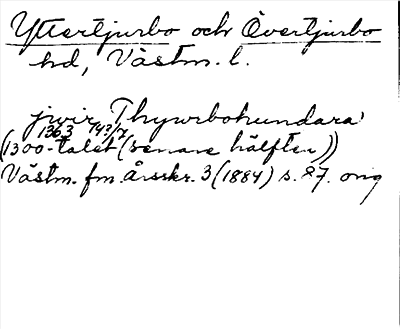 Yttertjurbo och Övertjurbo
hd, Västm. l.
jwir Thywrbohundara
1363 14?/7
(1300-talet (senare hälften))
Västm. fm. årsskr. 3 (1884) s. 87. orig